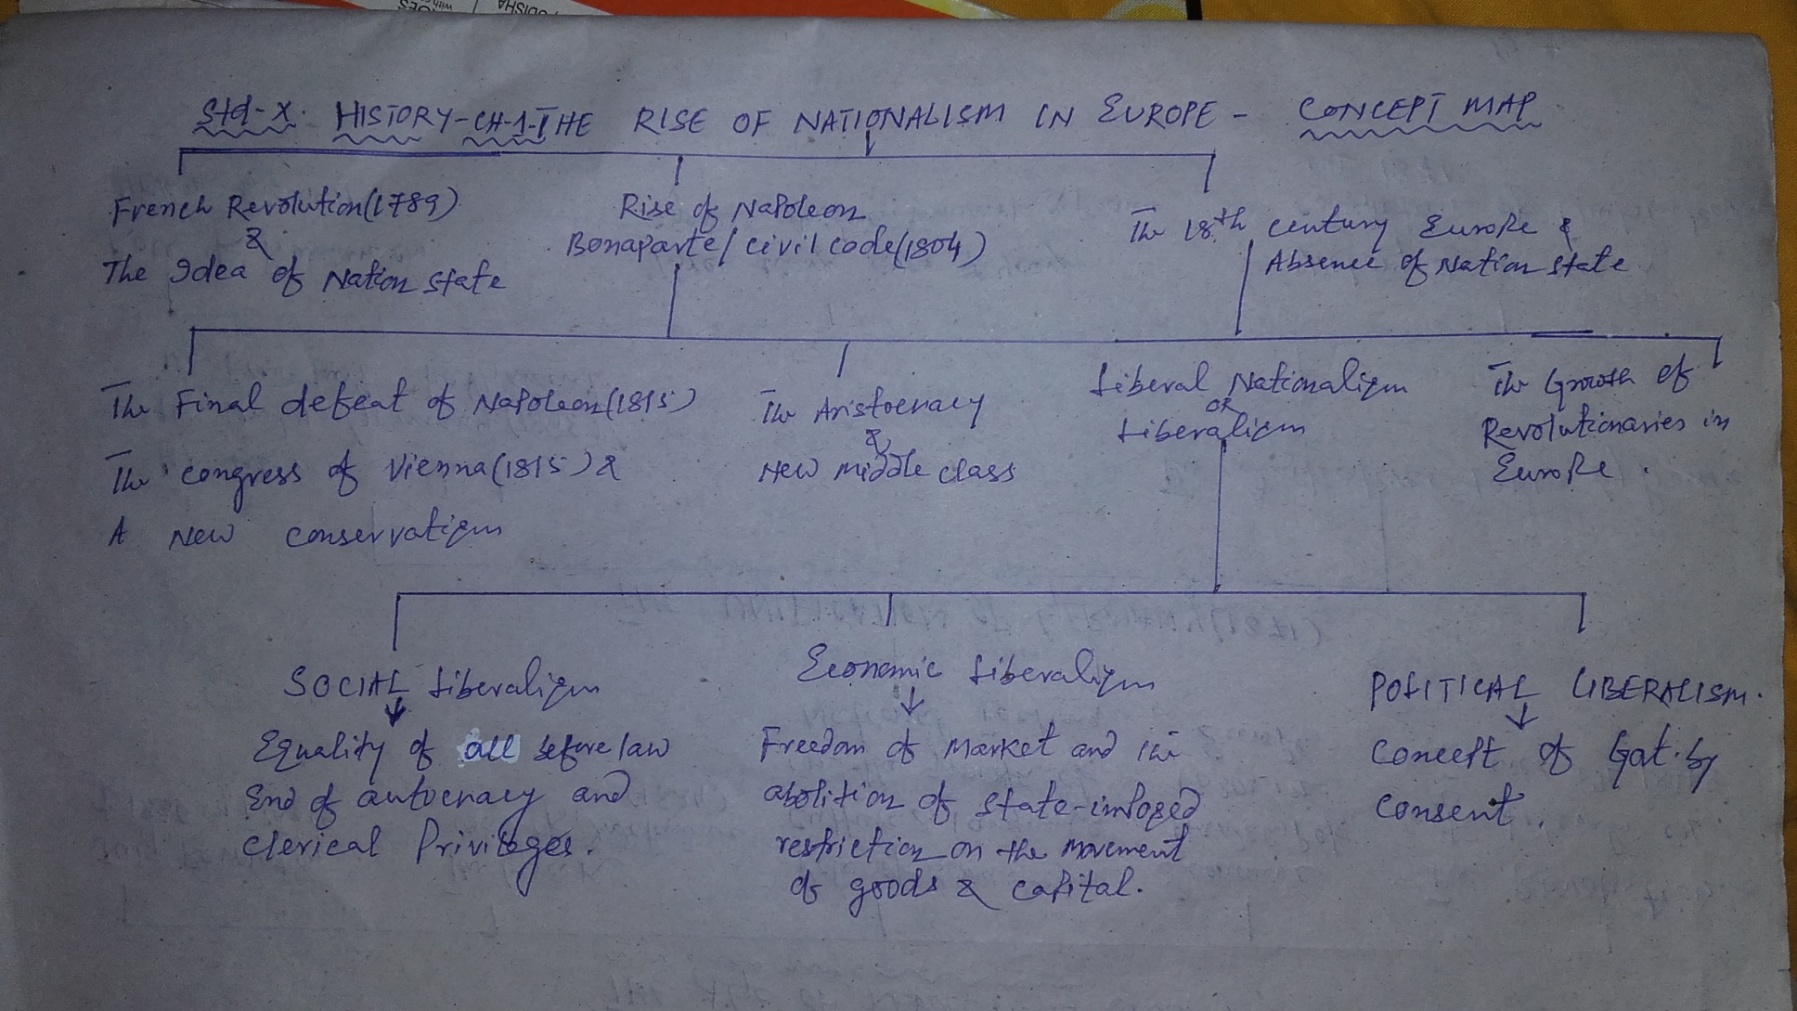 Std-X. HISTORY-CH-1-THE RISE OF NATIONALISM IN EUROPE - CONCEPT MAP
French Revolution(1789)
&
The Idea of Nation state
Rise of Napoleon
Bonaparte/civil code(1804)
The 18th century Europe &
Absence of Nation state
The Final defeat of Napoleon(1815)
The congress of Vienna(1815) &
A New conservatism
The Aristocracy
&
New middle class
Liberal Nationalism
OR
Liberalism
The Growth of
Revolutionaries in
Europe.
SOCIAL Liberalism
Equality of all before law
End of autocracy and
clerical Privileges.
Economic Liberalism
Freedom of market and the
abolition of state-imposed
restriction on the movement
of goods & capital.
POLITICAL LIBERALISM.
Concept of Govt. by
consent.
ODISHA